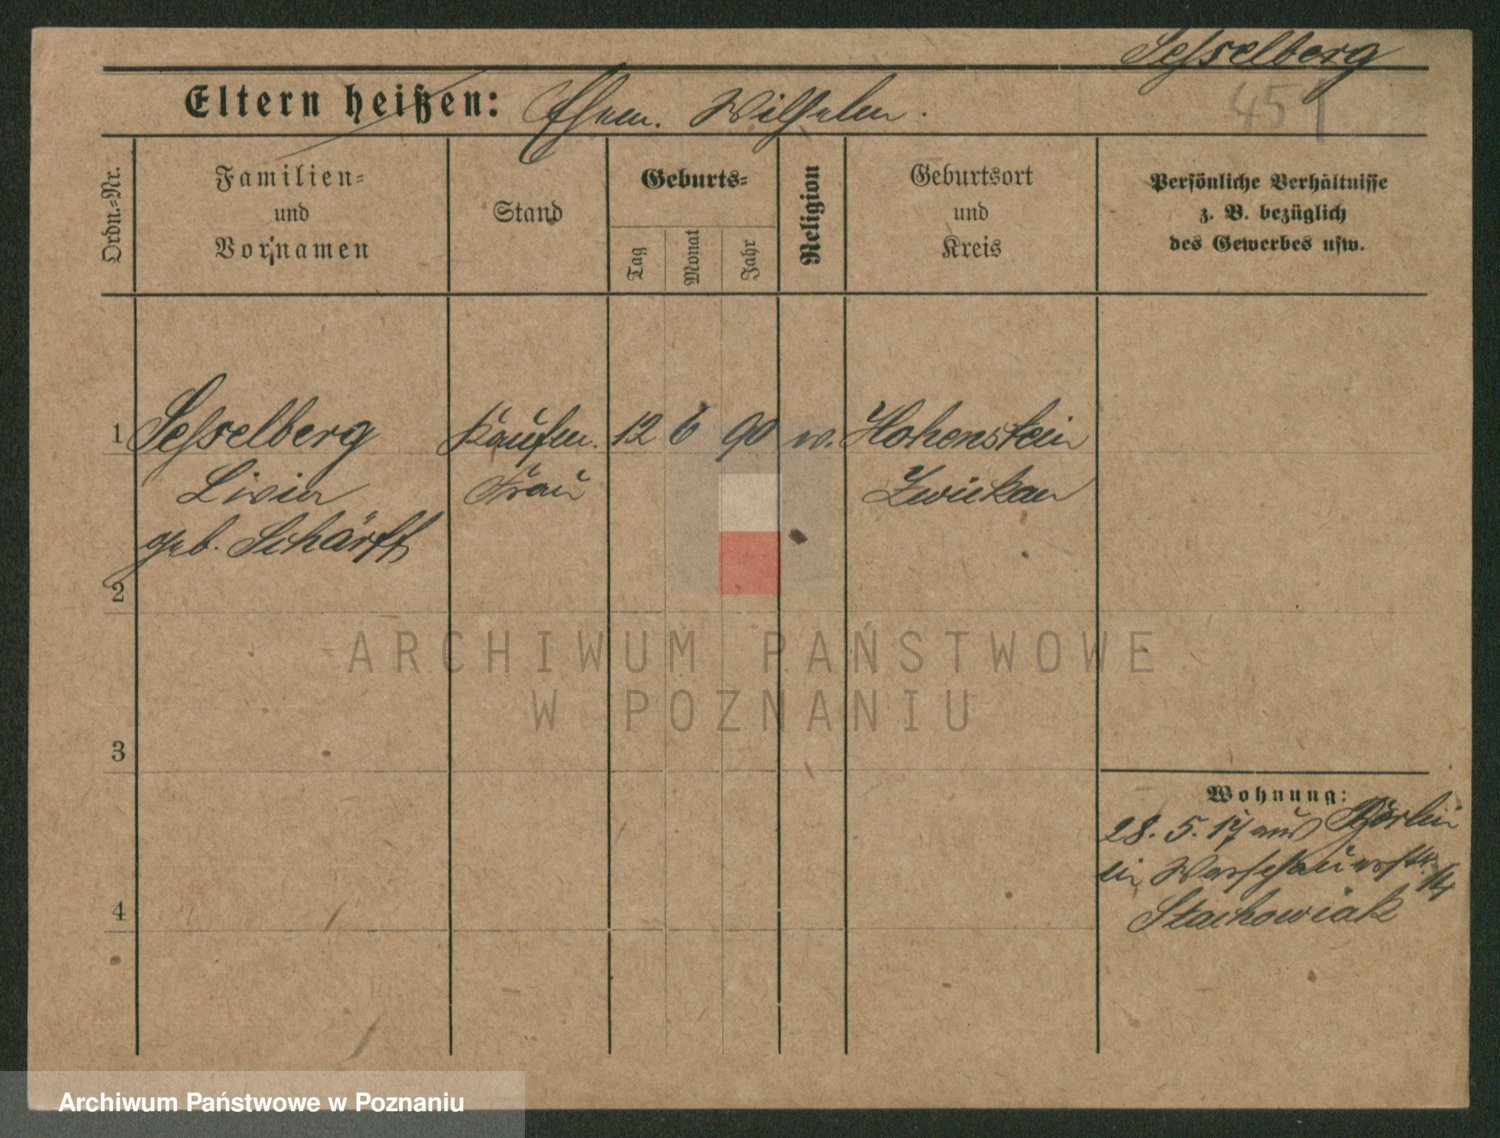 Sesselberg
Eltern heißen: Ehem. Wilhelm.
451
Ordn.-Nr.
Familien-
und
Vornamen
Stand
Geburts-
Tag
Monat
Jahr
Religion
Geburtsort
und
Kreis
Persönliche Verhältnisse
z. B. bezüglich
des Gewerbes usw.
1 Sesselberg Kaufm. 12 6 90 Hohenstein
Frau Zwickau
geb. Schärff
2
ARCHIWUM PAŃSTWOWE
W POZNANIU
3
Wohnung:
28. 5. 17 aus Berlin
in Warschauerstr. 14
4 Stachowiak
Archiwum Państwowe w Poznaniu